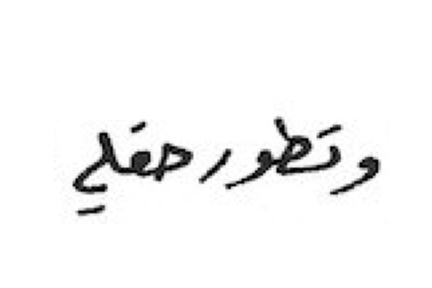 وتطور حقلي